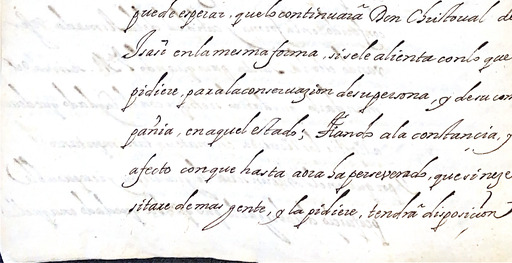 puede esperar, que lo continuarà Don Christoval de
Isasi en la mesma forma, si se le alienta con lo que
pidiere, para la conservazion de su persona, y de su com
pañia, en aquel estado; fiando a la constancia, y
afecto con que hasta aora ha perseverado, que si neze
sitare de mas gente, y la pidiere, tendrà disposicion